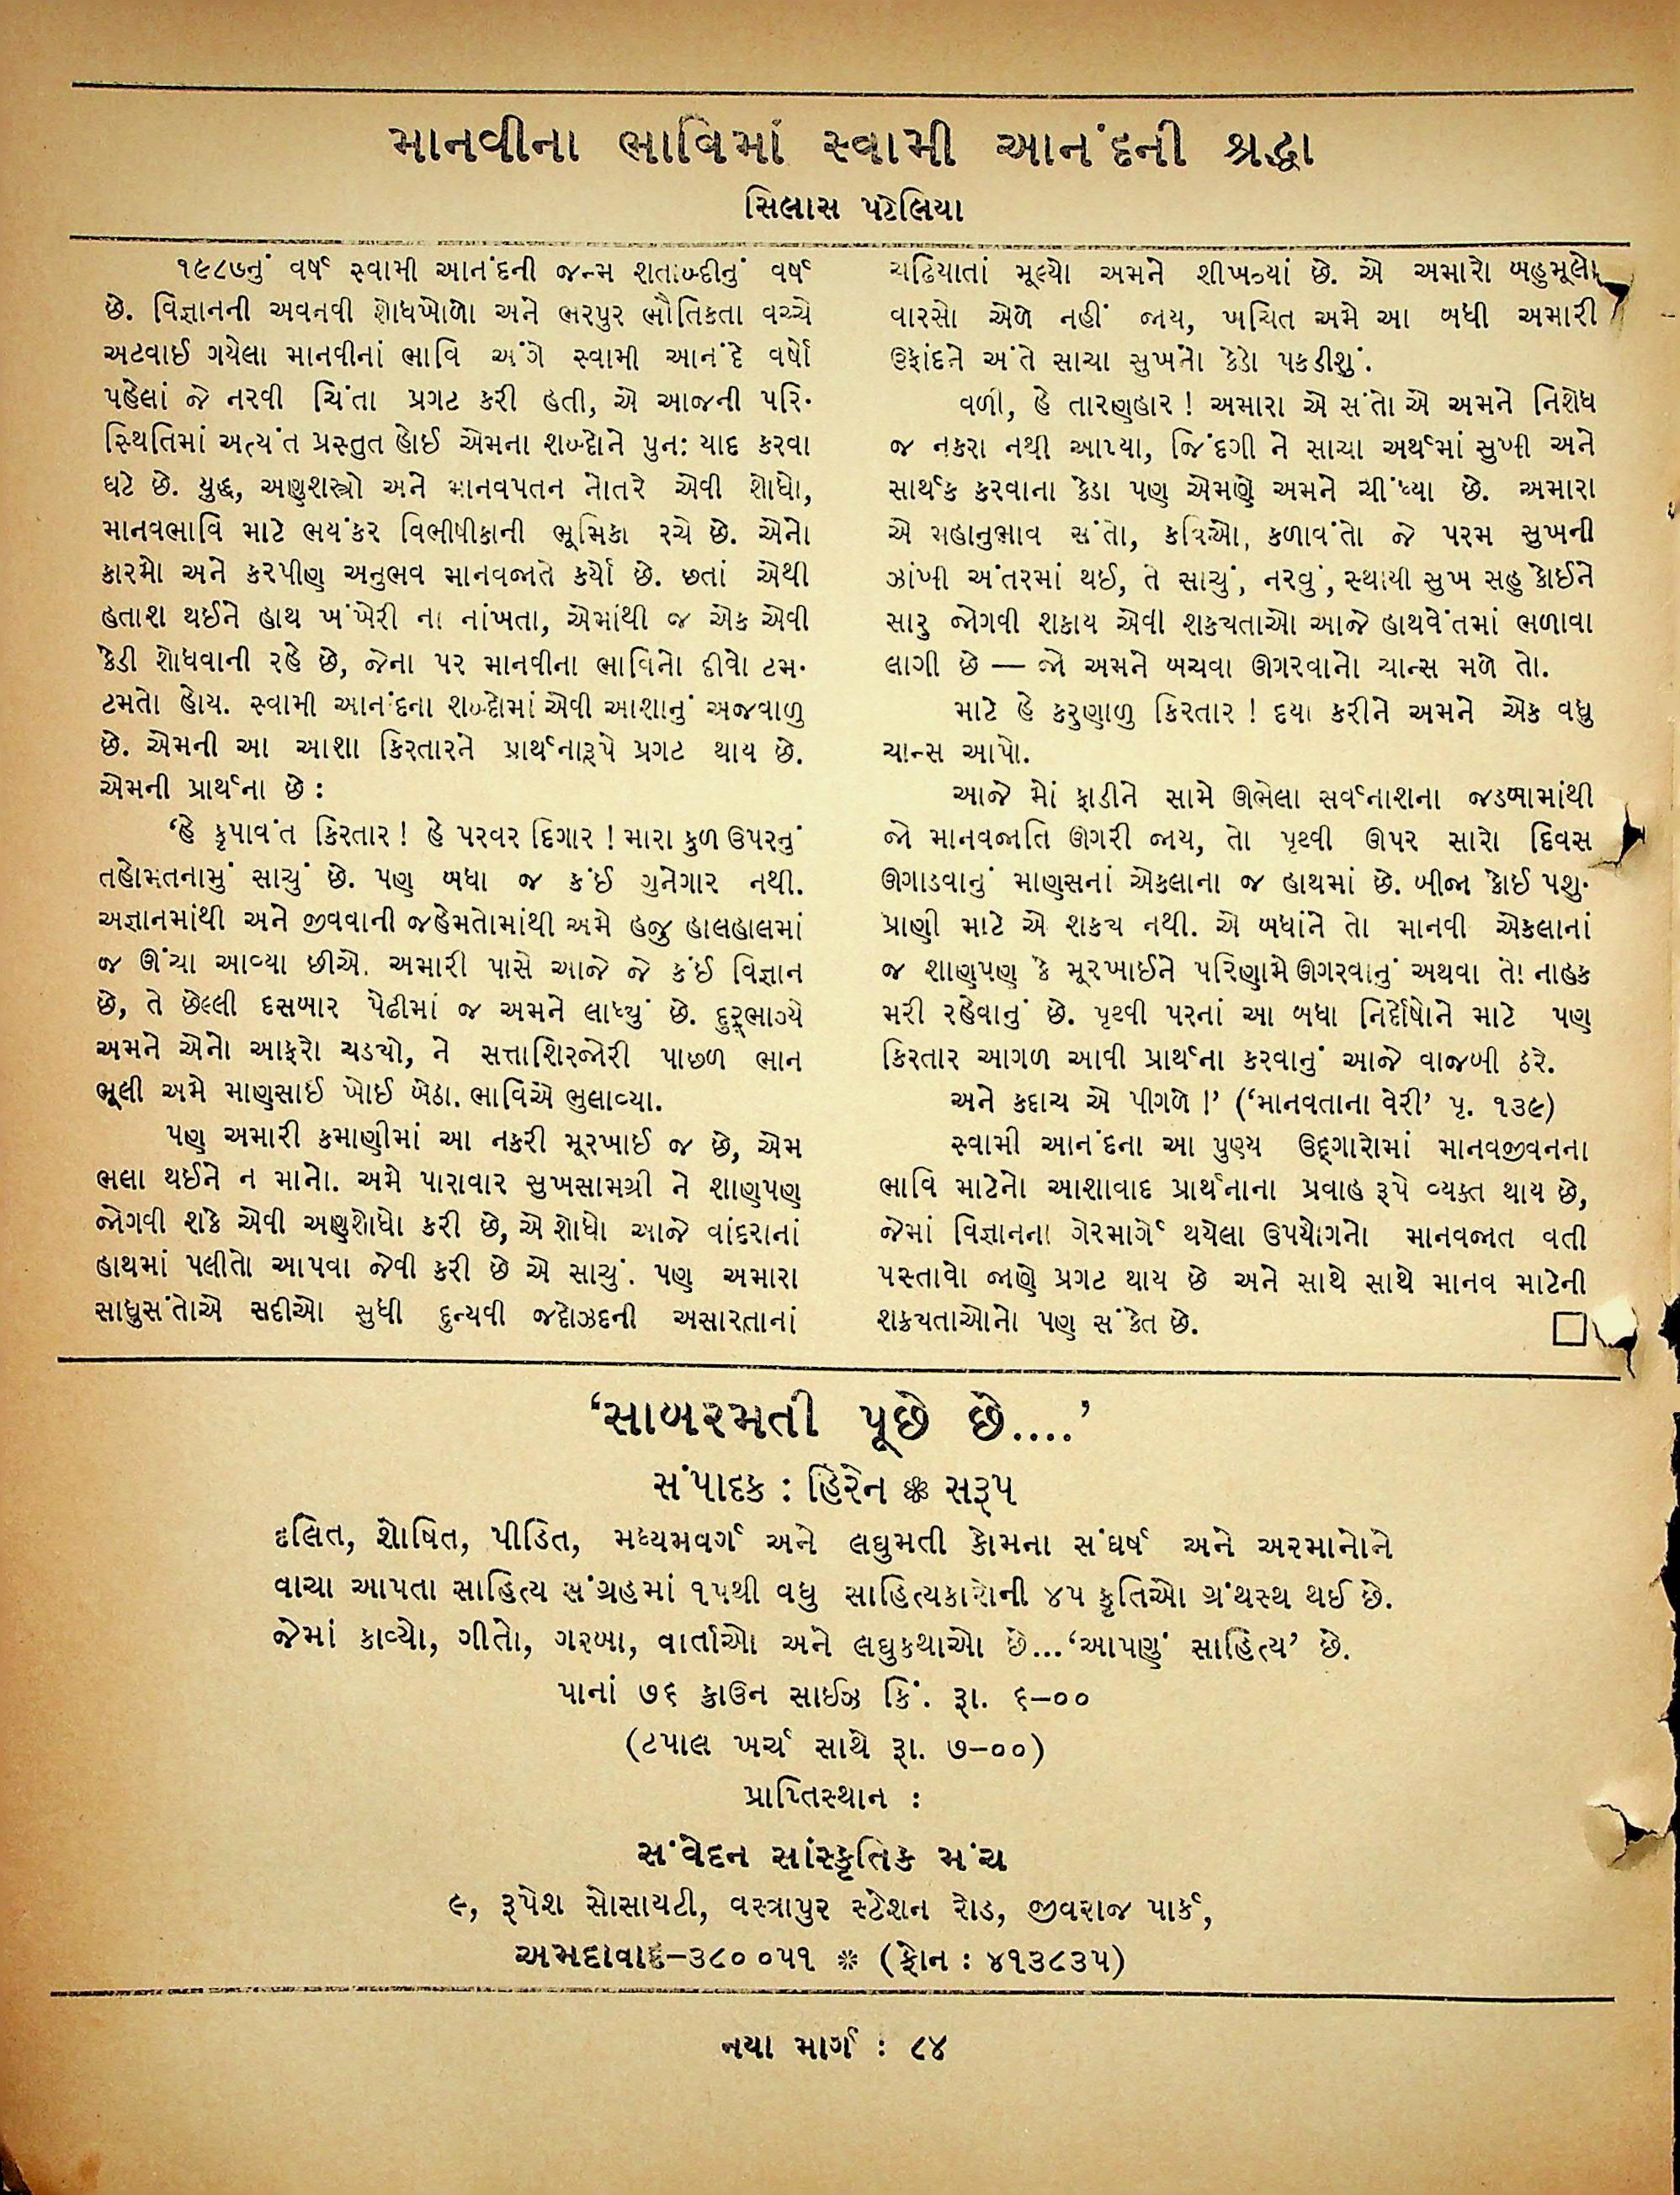 માનવીના ભાવિમાં સ્વામી આનંદની શ્રદ્ધા
સિલાસ પટેલિયા
૧૯૮૭નું વર્ષ સ્વામી આનંદની જન્મ શતાબ્દીનું વર્ષ
છે. વિજ્ઞાનની અવનવી શોધખોળો અને ભરપુર ભૌતિકતા વચ્ચે
અટવાઈ ગયેલા માનવીનાં ભાવિ અંગે સ્વામી આનંદે વર્ષો
પહેલાં જે નરવી ચિંતા પ્રગટ કરી હતી, એ આજની પરિ-
સ્થિતિમાં અત્યંત પ્રસ્તુત હોઈ એમના શબ્દોને પુનઃ યાદ કરવા
ઘટે છે. યુદ્ધ, અણુશસ્ત્રો અને માનવપતન નોતરે એવી શોધો,
માનવભાવિ માટે ભયંકર વિભીષીકાની ભૂમિકા રચે છે. એનો
કારમો અને કરપીણ અનુભવ માનવજાતે કર્યો છે. છતાં એથી
હતાશ થઈને હાથ ખંખેરી ના નાંખતા, એમાંથી જ એક એવી
કેડી શોધવાની રહે છે, જેના પર માનવીના ભાવિનો દીવો ટમ-
ટમતો હોય. સ્વામી આનંદના શબ્દોમાં એવી આશાનું અજવાળુ
છે. એમની આ આશા કિરતારને પ્રાર્થનારૂપે પ્રગટ થાય છે.
એમની પ્રાર્થના છે :
‘હે કૃપાવંત કિરતાર ! હે પરવર દિગાર ! મારા કુળ ઉપરનું
તહોમતનામું સાચું છે. પણ બધા જ કંઈ ગુનેગાર નથી.
અજ્ઞાનમાંથી અને જીવવાની જહેમતોમાંથી અમે હજુ હાલહાલમાં
જ ઊંચા આવ્યા છીએ. અમારી પાસે આજે જે કંઈ વિજ્ઞાન
છે, તે છેલ્લી દસબાર પેઢીમાં જ અમને લાધ્યું છે. દુર્ભાગ્યે
અમને એનો આફરો ચડ્યો, ને સત્તાશિરજોરી પાછળ ભાન
ભૂલી અમે માણસાઈ ખોઈ બેઠા. ભાવિએ ભુલાવ્યા.
પણ અમારી કમાણીમાં આ નકરી મૂરખાઈ જ છે, એમ
ભલા થઈને ન માનો. અમે પારાવાર સુખસામગ્રી ને શાણપણ
જોગવી શકે એવી અણુશોધો કરી છે, એ શોધો આજે વાંદરાનાં
હાથમાં પલીતો આપવા જેવી કરી છે એ સાચું. પણ અમારા
સાધુસંતોએ સદીઓ સુધી દુન્યવી જદોઝદની અસારતાનાં
ચઢિયાતાં મૂલ્યો અમને શીખવ્યાં છે. એ અમારો બહુમૂલો
વારસો એળે નહીં જાય, ખચિત અમે આ બધી અમારી
ઉફાંદને અંતે સાચા સુખનો કેડો પકડીશું.
વળી, હે તારણહાર ! અમારા એ સંતો એ અમને નિશેધ
જ નકરા નથી આપ્યા, જિંદગી ને સાચા અર્થમાં સુખી અને
સાર્થક કરવાના કેડા પણ એમણે અમને ચીંધ્યા છે. અમારા
એ મહાનુભાવ સંતો, કવિઓ, કળાવંતો જે પરમ સુખની
ઝાંખી અંતરમાં થઈ, તે સાચું, નરવું, સ્થાયી સુખ સહુ કોઈને
સારુ જોગવી શકાય એવી શક્યતાઓ આજે હાથવેંતમાં ભળાવા
લાગી છે — જો અમને બચવા ઊગરવાનો ચાન્સ મળે તો.
માટે હે કરુણાળુ કિરતાર ! દયા કરીને અમને એક વધુ
ચાન્સ આપો.
આજે મોં ફાડીને સામે ઊભેલા સર્વનાશના જડબામાંથી
જો માનવજાતિ ઊગરી જાય, તો પૃથ્વી ઊપર સારો દિવસ
ઊગાડવાનું માણસનાં એકલાના જ હાથમાં છે. બીજા કોઈ પશુ-
પ્રાણી માટે એ શક્ય નથી. એ બધાંને તો માનવી એકલાનાં
જ શાણપણ કે મૂરખાઈને પરિણામે ઊગરવાનું અથવા તો નાહક
મરી રહેવાનું છે. પૃથ્વી પરનાં આ બધા નિર્દોષોને માટે પણ
કિરતાર આગળ આવી પ્રાર્થના કરવાનું આજે વાજબી ઠરે.
અને કદાચ એ પીગળે !’ (‘માનવતાના વેરી’ પૃ. ૧૩૯)
સ્વામી આનંદના આ પુણ્ય ઉદ્દગારોમાં માનવજીવનના
ભાવિ માટેનો આશાવાદ પ્રાર્થનાના પ્રવાહ રૂપે વ્યક્ત થાય છે,
જેમાં વિજ્ઞાનના ગેરમાર્ગે થયેલા ઉપયોગનો માનવજાત વતી
પસ્તાવો જાણે પ્રગટ થાય છે અને સાથે સાથે માનવ માટેની
શક્યતાઓનો પણ સંકેત છે.
‘સાબરમતી પૂછે છે....’
સંપાદક : હિરેન ❀ સરૂપ
દલિત, શોષિત, પીડિત, મધ્યમવર્ગ અને લઘુમતી કોમના સંઘર્ષ અને અરમાનોને
વાચા આપતા સાહિત્ય સંગ્રહમાં ૧૫થી વધુ સાહિત્યકારોની ૪૫ કૃતિઓ ગ્રંથસ્થ થઈ છે.
જેમાં કાવ્યો, ગીતો, ગરબા, વાર્તાઓ અને લઘુકથાઓ છે...‘આપણું સાહિત્ય’ છે.
પાનાં ૭૬ ક્રાઉન સાઈઝ કિં. રૂા. ૬–૦૦
(ટપાલ ખર્ચ સાથે રૂા. ૭–૦૦)
પ્રાપ્તિસ્થાન :
સંવેદન સાંસ્કૃતિક મંચ
૯, રૂપેશ સોસાયટી, વસ્ત્રાપુર સ્ટેશન રોડ, જીવરાજ પાર્ક,
અમદાવાદ–૩૮૦ ૦૫૧ ❊ (ફોન : ૪૧૩૮૩૫)
નયા માર્ગ : ૮૪